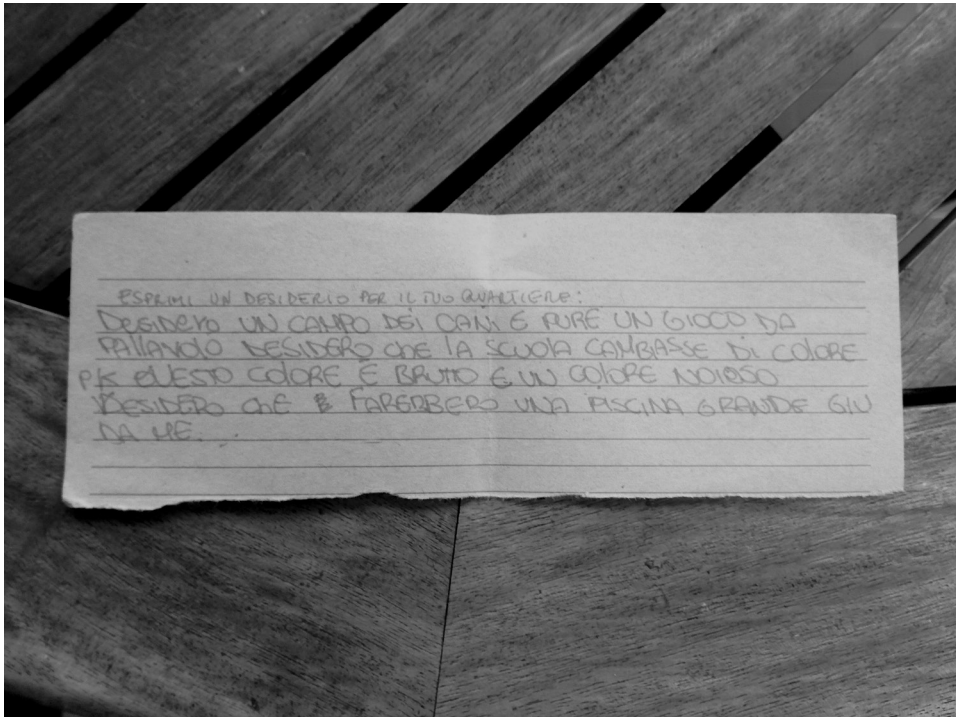 ESPRIMI UN DESIDERIO PER IL TUO QUARTIERE:
DESIDERO UN CAMPO DEI CANI E PURE UN GIOCO DA
PALLAVOLO DESIDERO CHE LA SCUOLA CAMBIASSE DI COLORE
PK QUESTO COLORE È BRUTTO E UN COLORE NOIOSO
DESIDERO CHE FAREBBERO UNA PISCINA GRANDE GIU
DA ME.